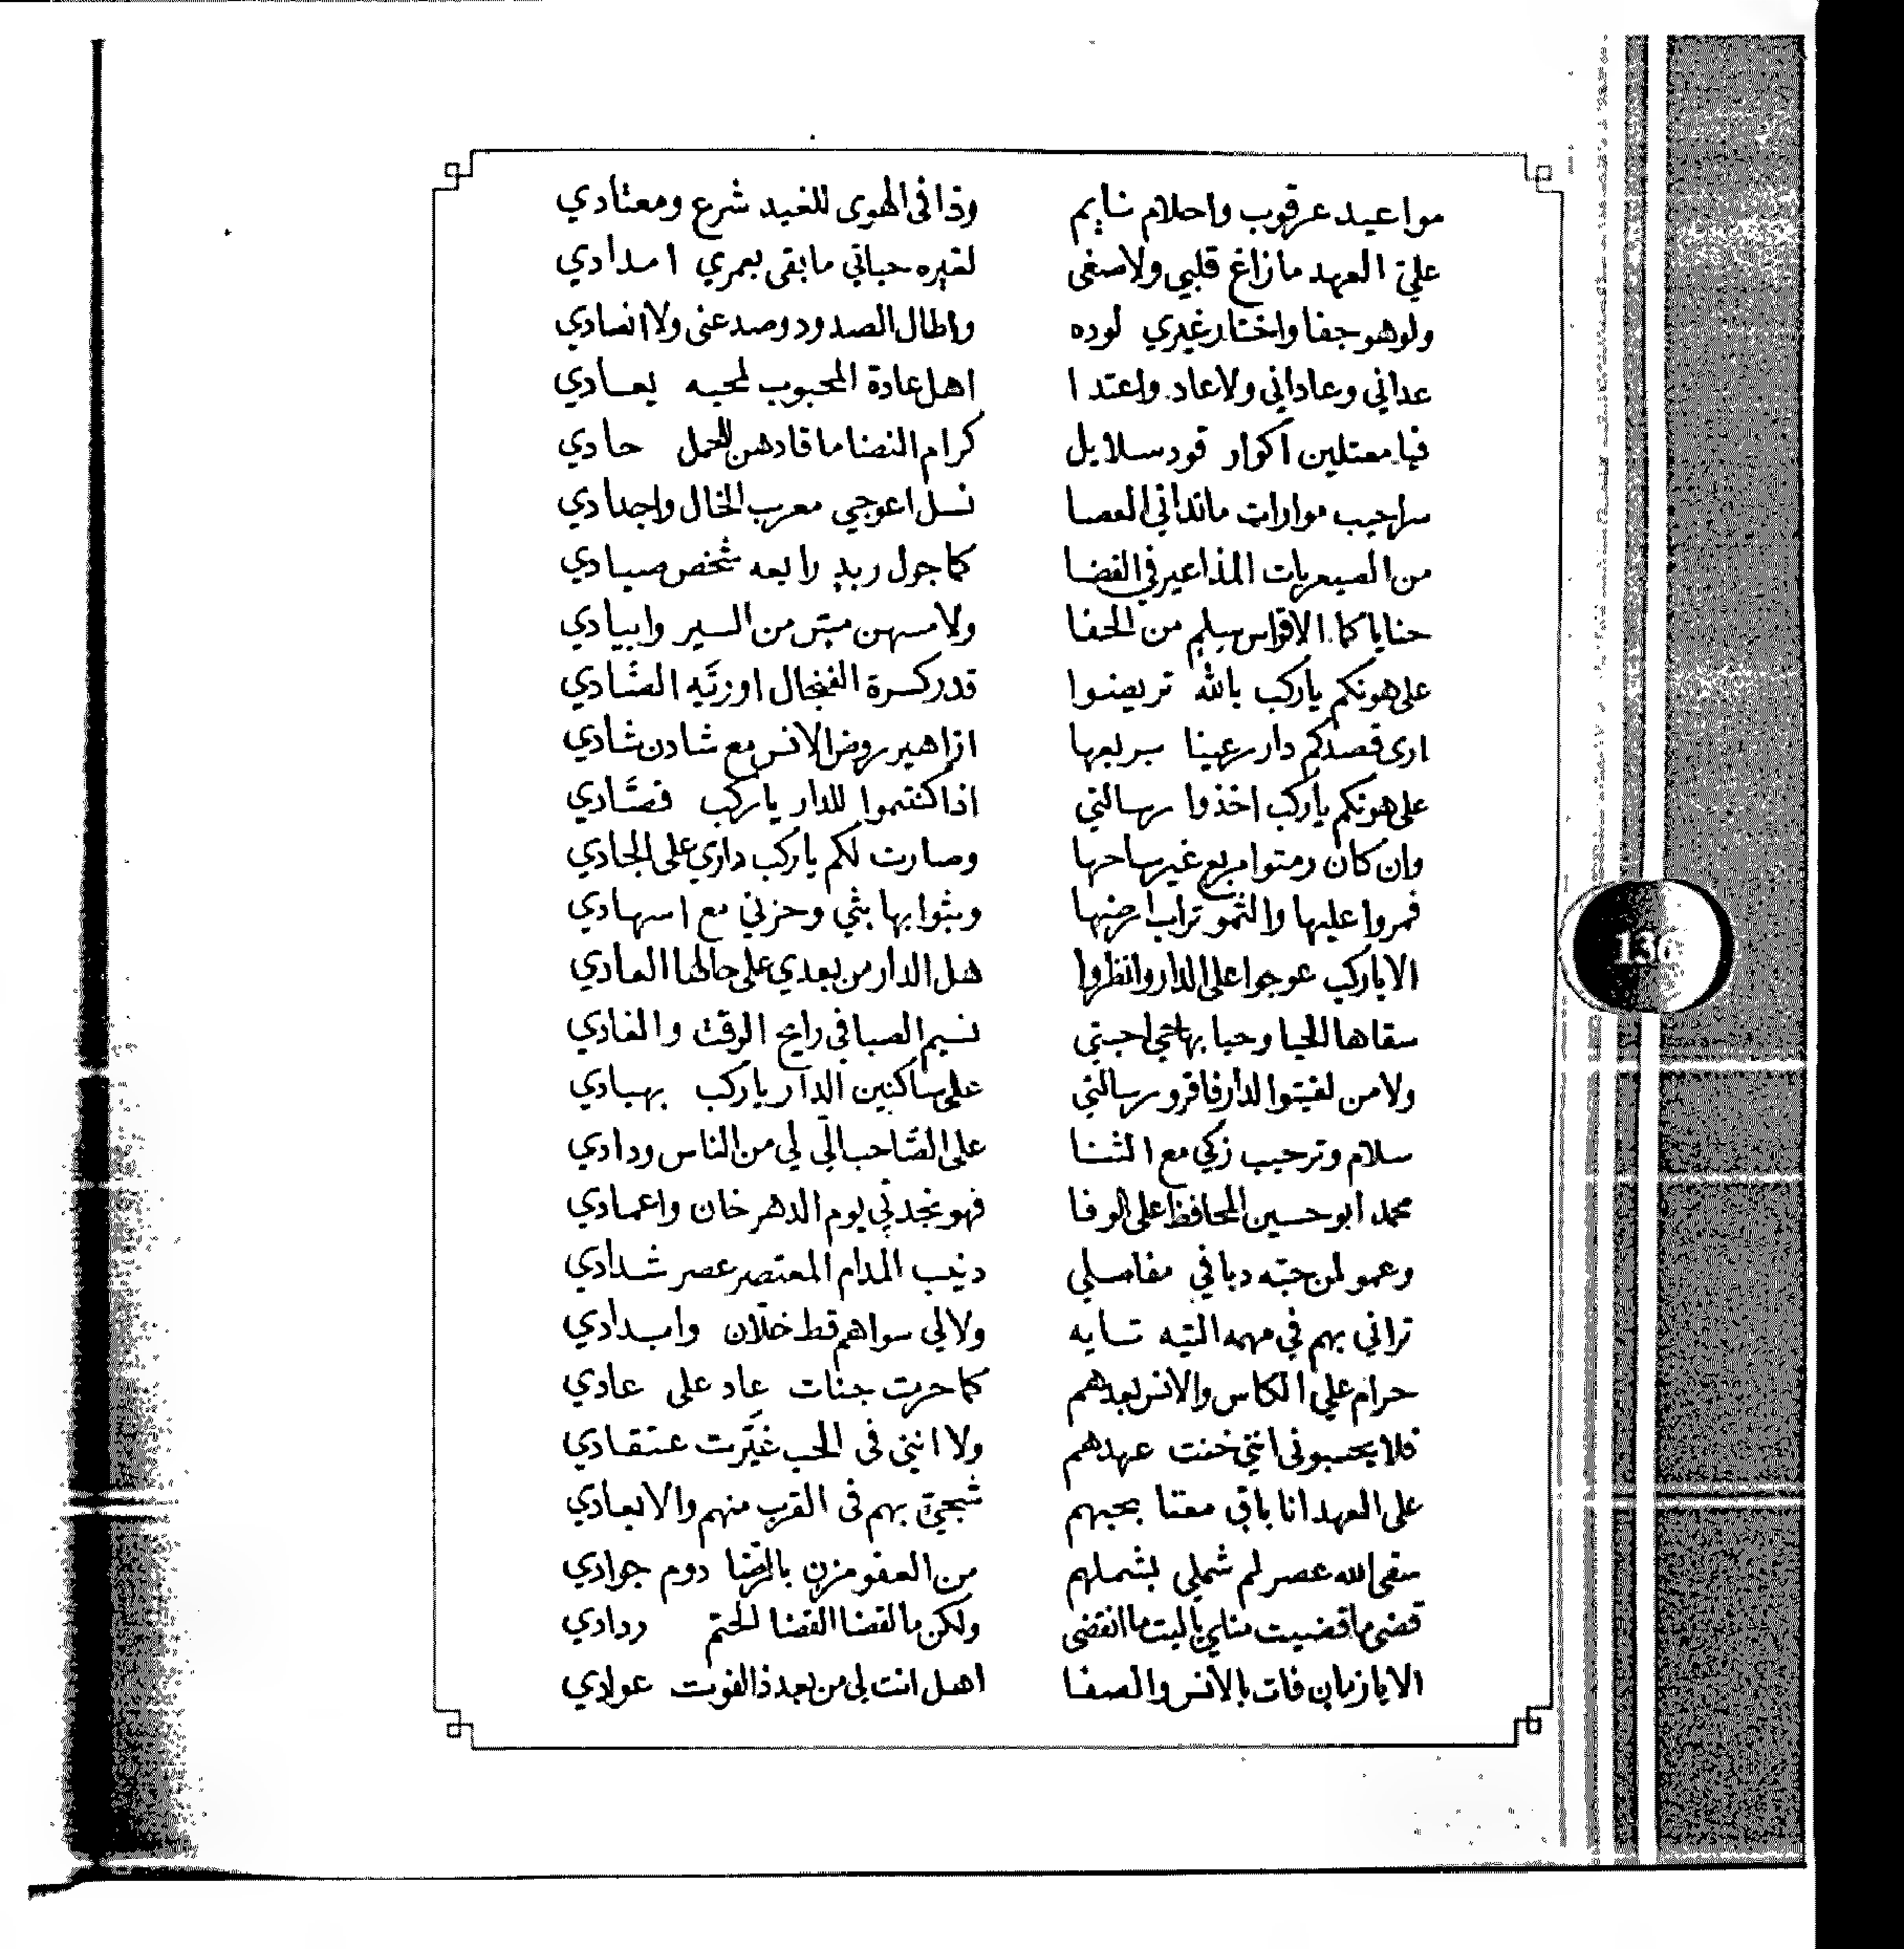 مواعيد عرقوب واحلام نايم وذا فى الهوى للغيد شرع ومعتادي
علىّ العهد ما زاغ قلبي ولا صغى لغيره حياتي ما بقى بعمري امدادي
ولو هو جفا واختار غيري لوده واطال الصدود وصد عنى ولا انصادي
عداني وعاداني ولا عاد واعتدا اهل عادة المحبوب لمحبه يعادي
فيا معتلين اكوار قود سلايل كرام النضا ما قادهن للحمل حادي
سراحيب موارات ما تداني العصا نسل اعوجي معرب الخال واجدادي
من الصيعريات المذاعير في الفضا كما جول ربد رايعه شخص صيادي
حنايا كما الاقواس سليم من الحفا ولا مسهن من السير وابيادي
على هونكم ياركب بالله تريضوا قدر كسرة الفنجال اوزيّه الصّادي
ارى قصدكم دار رعينا بربعها ازاهير روض الانس مع شادن شادي
على هونكم ياركب اخذوا رسالتي اذا كنتموا للدار ياركب قصّادي
وان كان رمتوا مربع غير ساحها وصارت لكم ياركب داري على الجادي
فمروا عليها والثمو تراب ارضها وبثوا بها بثي وحزني مع اسهادي
الا ياركب عوجوا على الدار وانظروا هل الدار من بعدي على حالها العادي
سقاها الحيا وحيا بها حي احبتي نسيم الصبا في رايح الوقت والغادي
ولا من لفيتوا الدار فاقرو رسالتي على ساكنين الدار ياركب بهيادي
سلام وترحيب زكي مع الثنا على الصّاحب الّي لي من الناس ودادي
محمد ابو حسين المحافظ على الوفا فهو نجدتي يوم الدهر خان واعمادي
وعمو لمن حبّه دبا في مفاصلي دبيب المدام المعتصر عصر شدادي
تراني بهم في مهمه التيه تايه ولا لي سواهم قط خلّان وابدادي
حرام علي الكاس والانس بعدهم كما حرت جنات عاد على عادي
فلا يحسبونى انني خنت عهدهم ولا انني فى الحب غيّرت عتقادي
على العهد انا باقى معتا بحبهم شجيّ بهم فى القرب منهم والابعادي
سقى الله عصر لم شملي بشملهم من العفو مزن بالرضا دوم جوادي
قضى ما قضيت مناي ياليت ما انقضى ولكن ما لقضا القضا الحتم ردادي
الا يا زمان فات بالانس والصفا اهل انت لي من بعد ذا الفوت عوادي
136